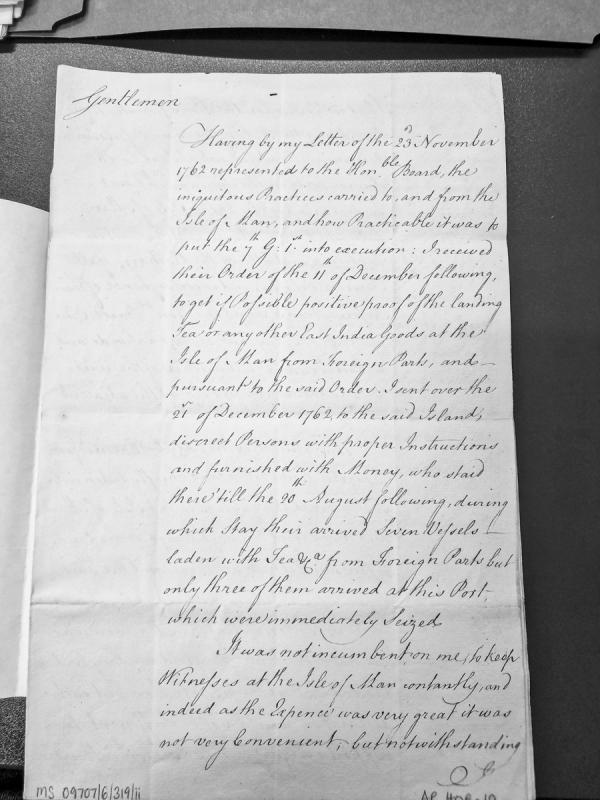 Gentlemen
Having by my Letter of the 23d November
1762 represented to the Honble Board, the
iniquitous Practices carried to, and from the
Isle of Man, and how Practicable it was to
put the 7th G: 1st into execution: I received
their Order of the 11th of December following,
to get if Possible positive proof of the landing
Tea or any other East India Goods at the
Isle of Man from Foreign Parts, and
pursuant to the said Order. I sent over the
21st of December 1762, to the said Island,
discreet Persons with proper Instructions
and furnished with Money, who staid
there 'till the 20th August following, during
which Stay their arrived Seven Vessels
laden with Tea &ca from Foreign Parts but
only three of them arrived at this Port,
which were immediately Seized
It was not incumbent on me, to keep
Witnesses at the Isle of Man contantly, and
indeed as the Expence was very great it was
not very Convenient, but notwithstanding
MS 09707/6/319/ii